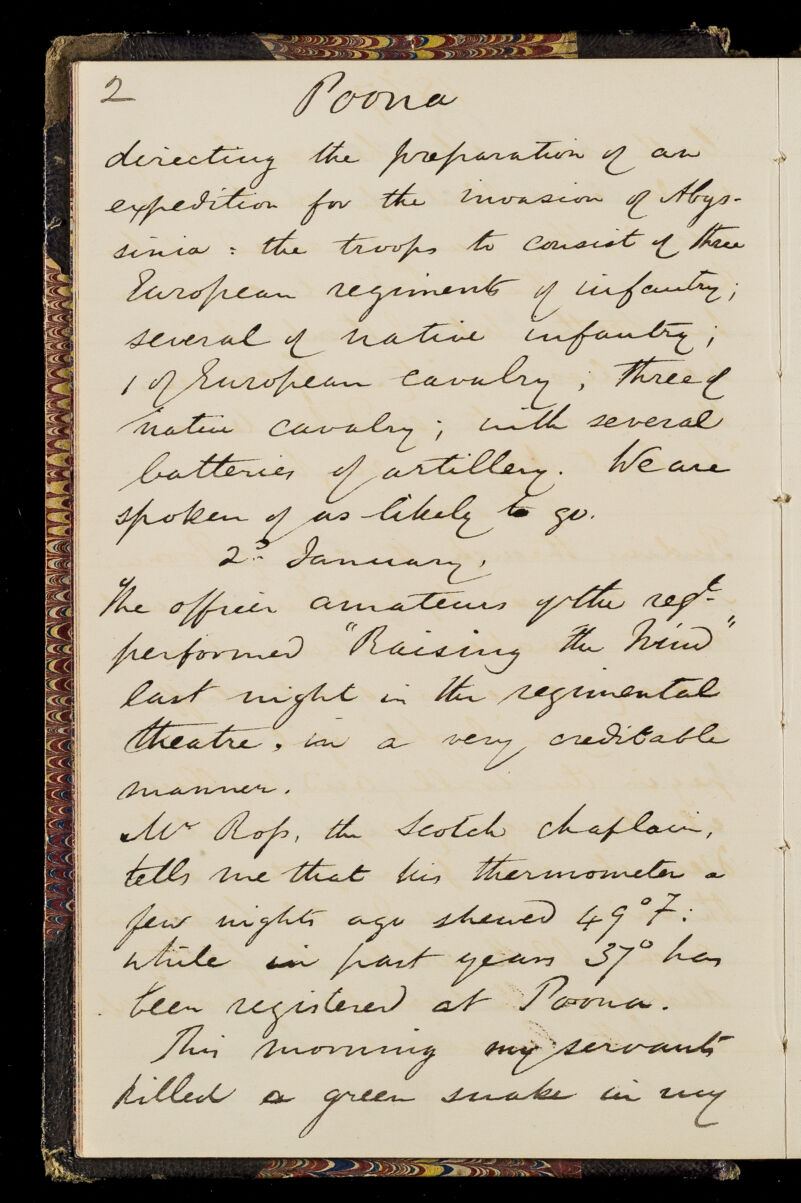 2 Poona
directing the preparation of an
expedition for the invasion of Abys-
sinia : the troops to consist of three
European regiments of infantry ;
several of native infantry ;
1 of European cavalry ; three of
native cavalry ; with several
batteries of artillery. We are
spoken of as likely to go.
2d January.
The officer amateurs of the regt.
performed "Raising the Wind"
last night in the regimental
theatre, in a very creditable
manner.
Mr Ross, the Scotch chaplain,
tells me that his thermometer a
few nights ago shewed 49° F :
while in past years 37° has
been registered at Poona.
This morning my servants
killed a green snake in my